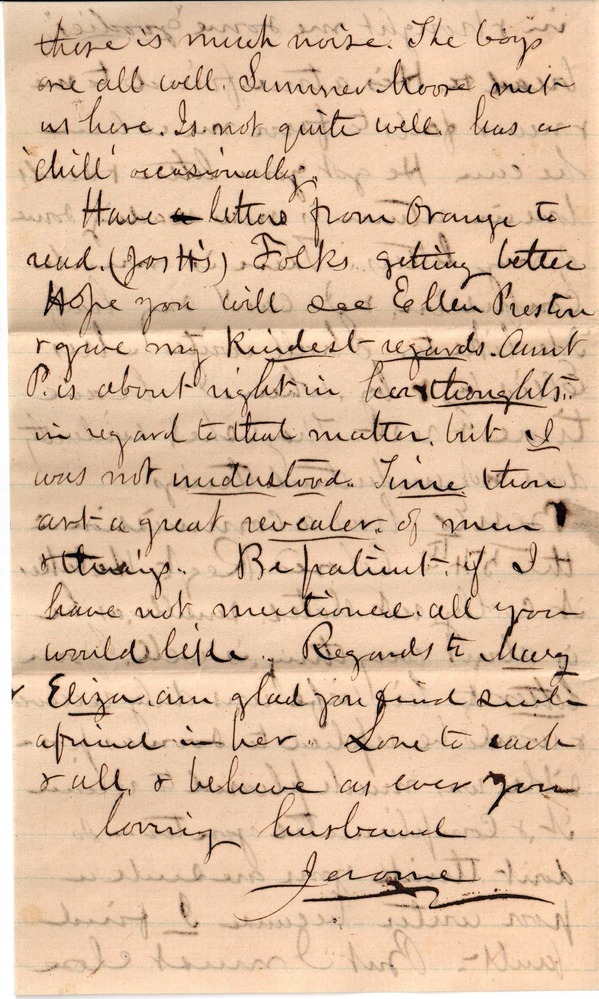 there is much noise. The boys
are all well. Sumner Moore met
us here. Is not quite well. has a
'chill' occasionally.
Have a letter from Orange to
read. (Jos H's) Folks getting better
Hope you will see Ellen Preston
& give my kindest regards. Aunt
P. is about right in her thoughts.
in regard to that matter, but I
was not understood. Time thou
art a great revealer of men
& things. Be patient, if I
have not mentioned all you
would like. Regards to Mary
Eliza. am glad you find such
a friend in her. Love to each
& all, & believe as ever your
loving husband
Jerome